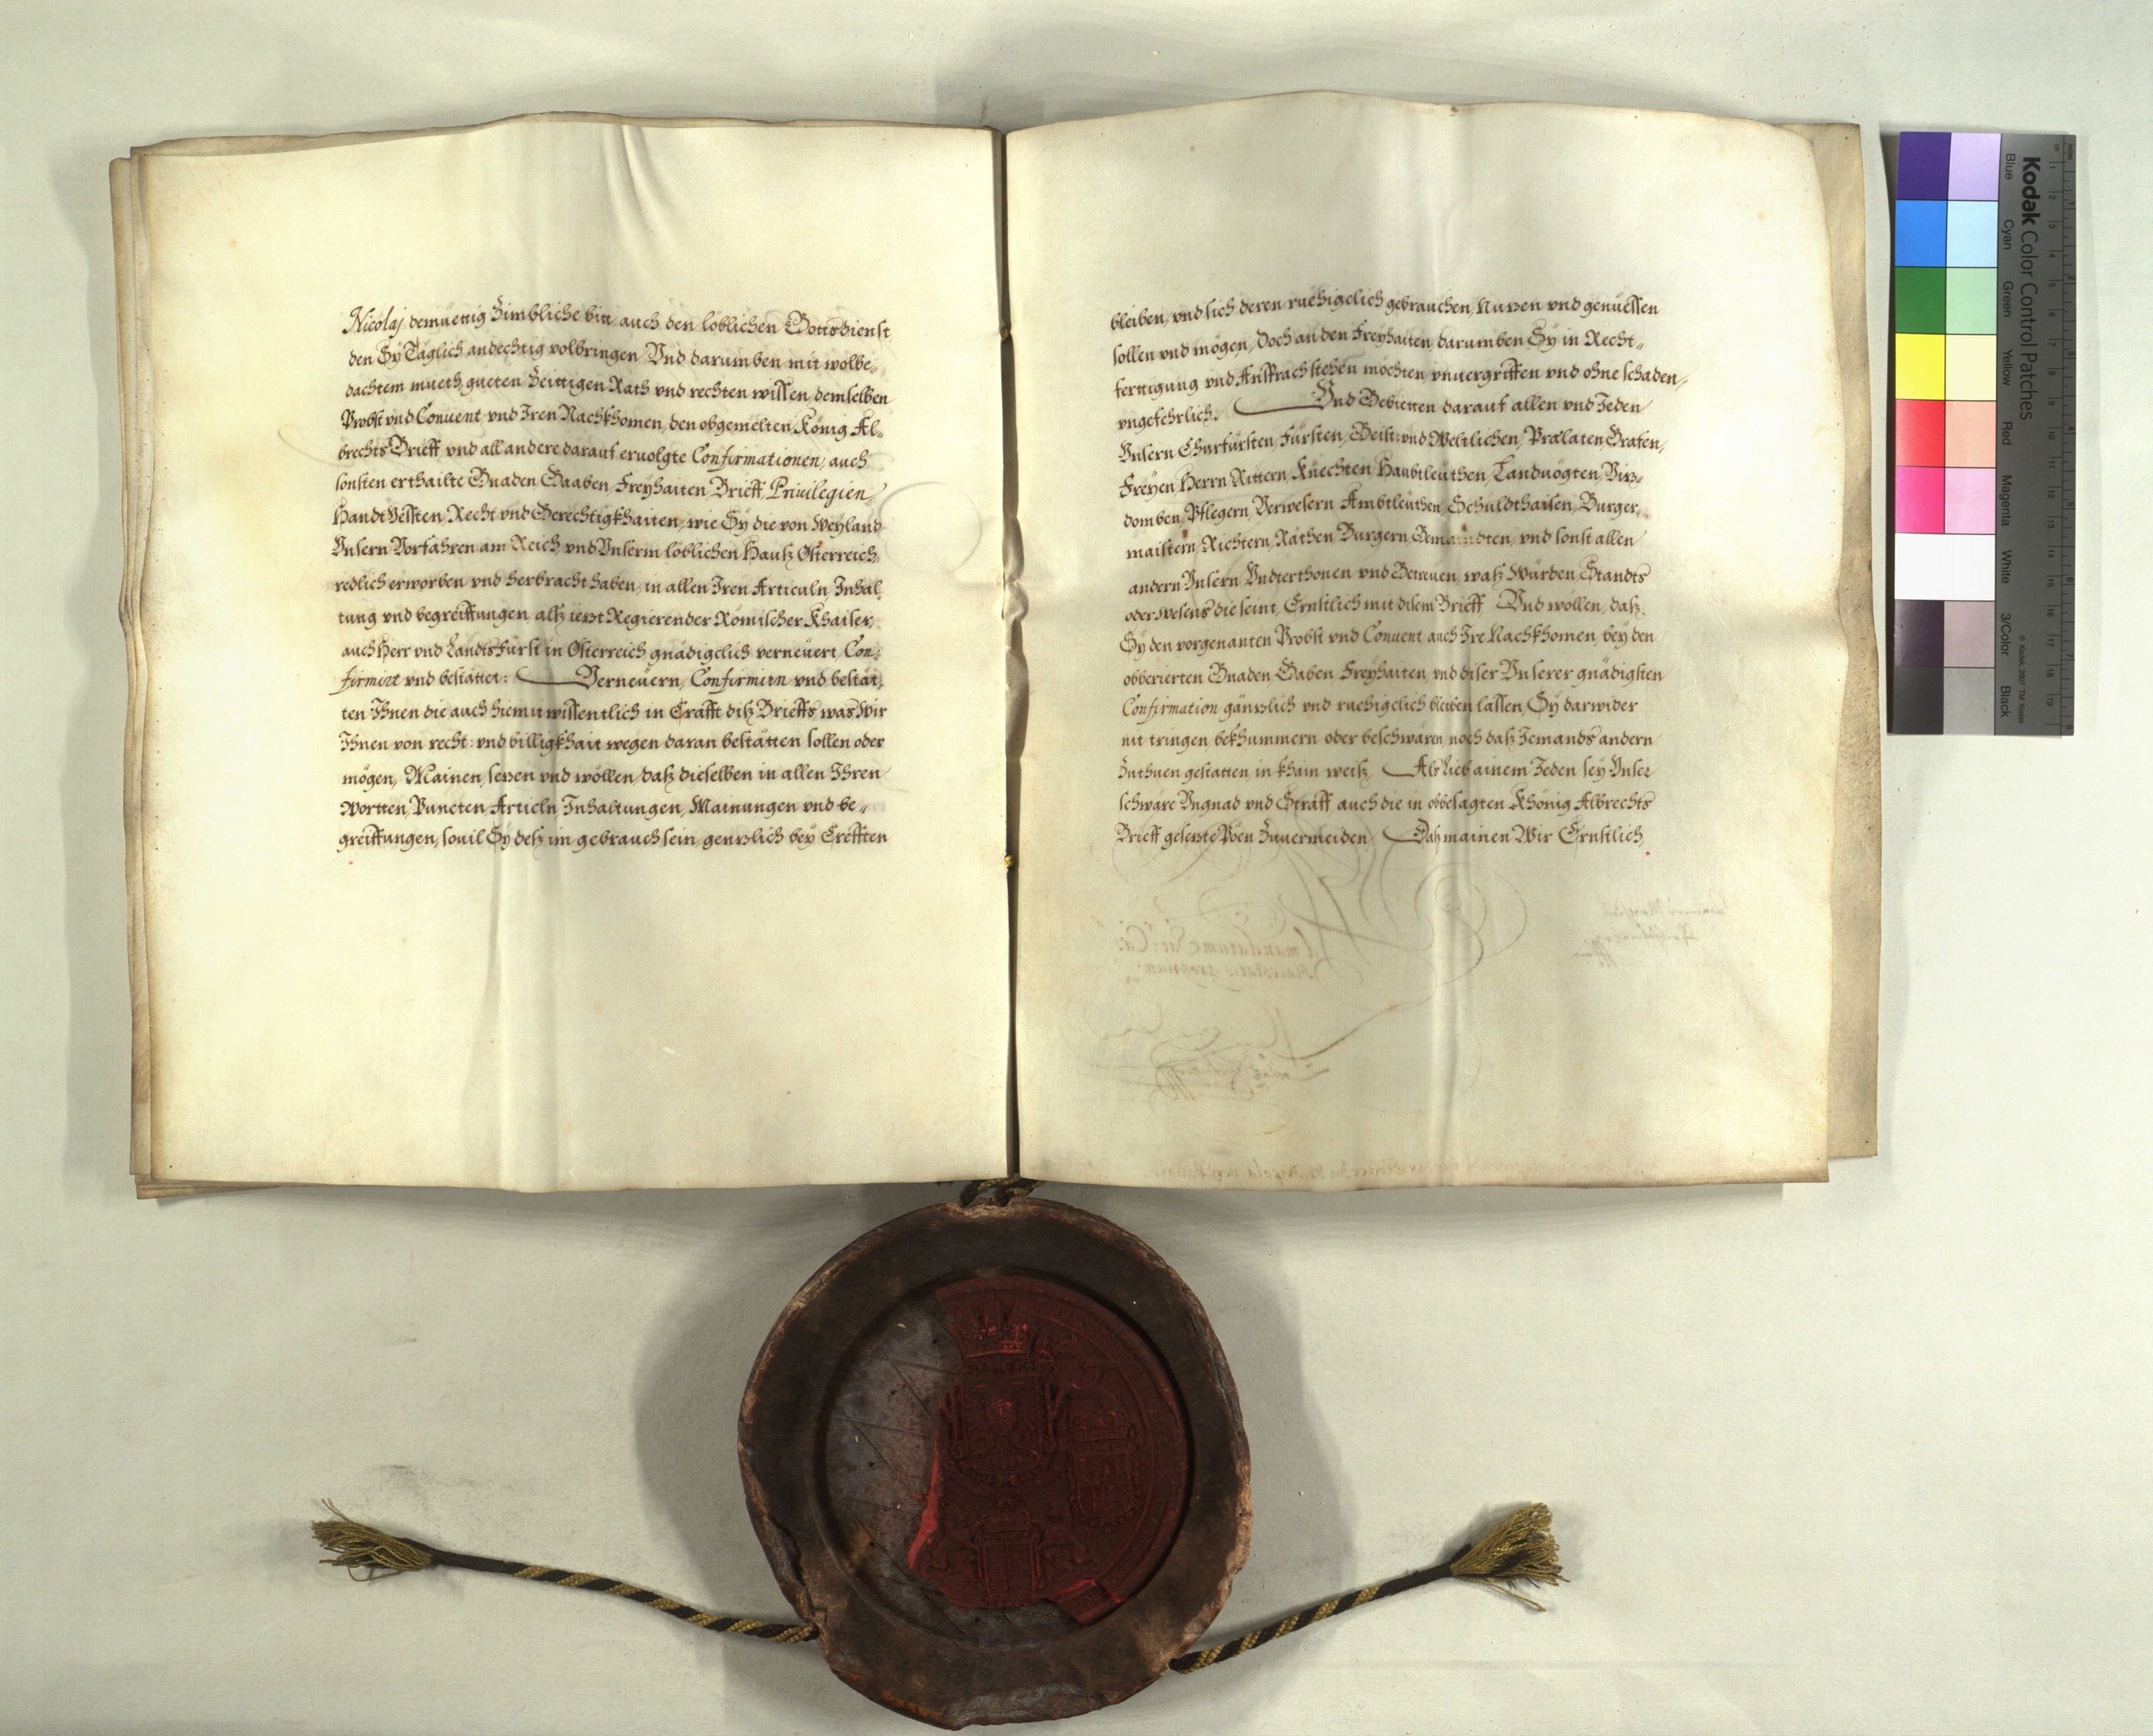 Nicolaj demüettig Zimbliche bitt, auch den löblichen Gottsdienst
den Sy Täglich andechtig volbringen, Vnd darumben mit wolbe„
dachtem mueth, gueten Zeittigen Rath vnd rechten wissen, demselben
Probst vnd Conuent vnd Iren Nachkhomen, den obgemelten König Al„
brechts Brieff, vnd all andere darauf eruolgte Confirmationen, auch
sonsten erthailte Gnaden Gaaben, Freyhaiten, Brieff, Priuilegien
Handt Vessten, Recht vnd Gerechtigkhaiten, wie Sy die von Weyland
Vnsern Vorfahren am Reich, vnd Vnserm löblichen Hausz Österreich,
redlich erworben vnd herbracht haben, in allen Iren Articuln, Inhal
tung vnd begreiffungen, alsz ietzt Regierender Römischer Khaiser,
auch Herr vnd Landts Fürst in Österreich gnädigclich verneüert, Con„
firmirt vnd bestättet: Verneüern, Confirmirn vnd bestät„
ten Ihnen die auch hiemit wissentlich in Crafft disz Brieffs was Wir
Ihnen von recht: vnd billigkhait wegen daran bestätten sollen oder
mögen, Mainen, setzen vnd wöllen, dasz dieselben in allen Ihren
wortten, Puncten, Articln, Inhaltungen, Mainungen vnd be„
greiffungen, souil Sy desz im gebrauch sein, gentzlich bey Crefften
bleiben, vnd sich deren ruehigclich gebrauchen, Nutzen vnd genüessen
sollen vnd mögen, Doch an den Freyhaiten, darumben Sy in Recht„
ferttigung vnd Ansprach stehen möchten, vnuergriffen vnd ohne schaden„
vngefehrlich. Vnd Gebietten darauf allen vnd Jeden
Vnsern Churfürsten, Fürsten, Geist: vnd Weltlichen, Prælaten, Grafen,
Freyen Herrn Rittern, Knechten, Haubtleüthen, Landuögten, Vitz„
domben, Pflegern, Verwesern, Ambtleüthen, Schuldthaisen, Burger„
maistern, Richtern, Räthen Burgern, Gemaindten, vnd sonst allen
andern Vnsern Vndterthonen vnd Getreuen, wasz Würden, Standts
oder wesens die seint, Ernstlich mit disem Brieff Vnd wöllen, dasz
Sy den vorgenanten Probst vnd Conuent auch Ire Nachkhomen, bey den
obberierten Gnaden, Gaben Freyhaiten, vnd diser Vnserer gnädigsten
Confirmation gäntzlich vnd ruehigclich bleiben lassen, Sy darwider
nit tringen bekhummern oder beschwären, noch dasz Jemands andern
Zuthuen gestatten, in khain weisz, Als lieb ainem Jeden sey Vnser
schwäre Vngnad vnd Straff auch die in obbesagten Khönig Albrechts
Brieff gesetzte Pöen Zuuermeiden Dasz mainen Wir Ernstlich
Kodak Color Control Patches
Blue
Cyan
Green
Yellow
Red
Magenta
White
3/Color
Black
© Kodak, 2007 TM: Kodak